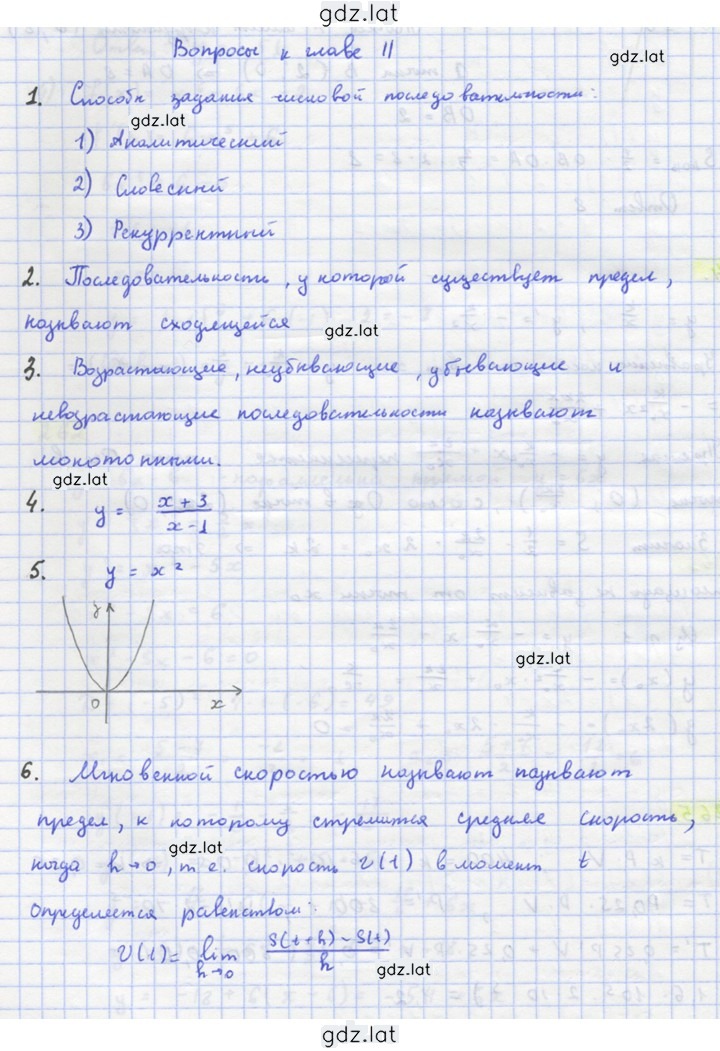 gdz.lat
Вопросы к главе II
gdz.lat
1. Способы задания числовой последовательности:
gdz.lat
1) Аналитический
2) Словесный
3) Рекуррентный
2. Последовательности, у которой существует предел,
называют сходящейся
gdz.lat
3. Возрастающие, неубывающие, убывающие и
невозрастающие последовательности называют
монотонными.
gdz.lat
4. y = x + 3 / x - 1
5. y = x²
y
0 x
gdz.lat
6. Мгновенной скоростью называют называют
предел, к которому стремится средняя скорость,
gdz.lat
когда h→0, т.е. скорость v(t) в момент t
определяется равенством:
v(t) = lim h→0 S(t+h) - S(t) / h
gdz.lat
gdz.lat